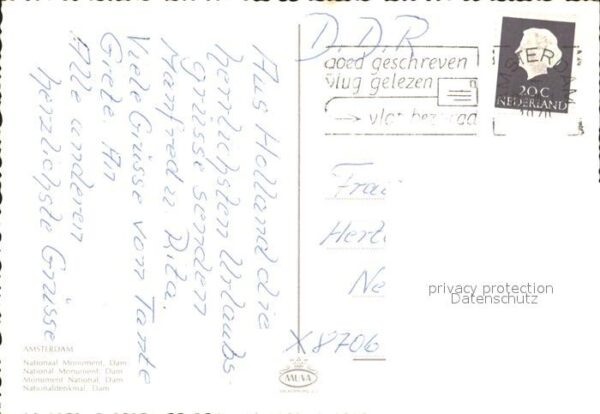 Aus Holland die
herrlichsten Urlaubs-
grüsse senden
Manfred u. Rita.
Viele Grüsse von Tante
Giele. An
Alle anderen
herzlichste Grüsse
AMSTERDAM
Nationaal Monument, Dam
National Monument, Dam
Monument National, Dam
Nationaldenkmal, Dam
D.D.R
goed geschreven
vlug gelezen
vlot bezorgd
AMSTERDAM
20 C
NEDERLAND
Frau
Hert
Ne
X 8706
MUVA
privacy protection
Datenschutz